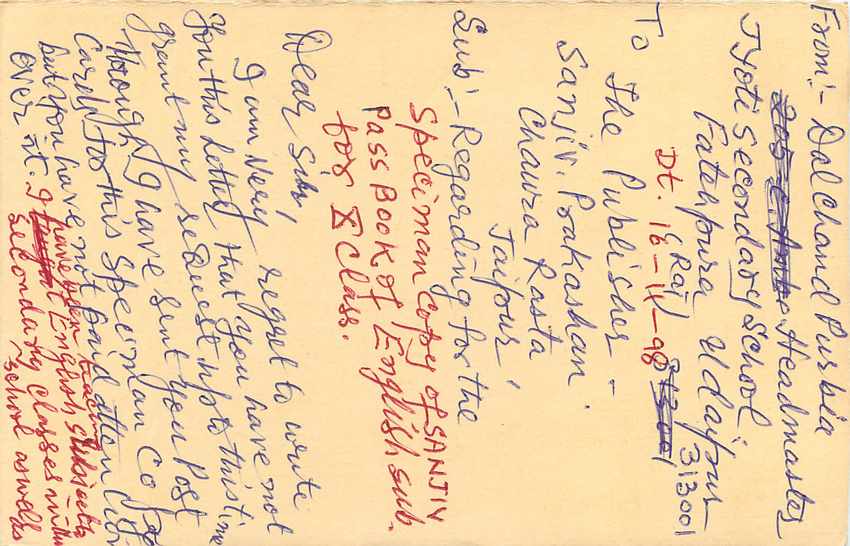 From:- Dal Chand Purbia
Headmaster
Jyoti Secondary School
Fatahpura Udaipur
(Raj) 313001
Dt. 16-11-98
To
The Publisher -
Sanjiv. Prakashan.
Chaura Rasta
Jaipur
Sub:- Regarding for the
Speciman Copy of SANJIV
Pass Book of English sub.
for X class.
Dear Sir,
I am very regret to write
you this letter that you have not
grant my request upto this time
though I have sent you Post
Cards for this speciman Copy
but you have not paid attention
over it. I have been teaching
English Subject
Secondary Classes
School as well as